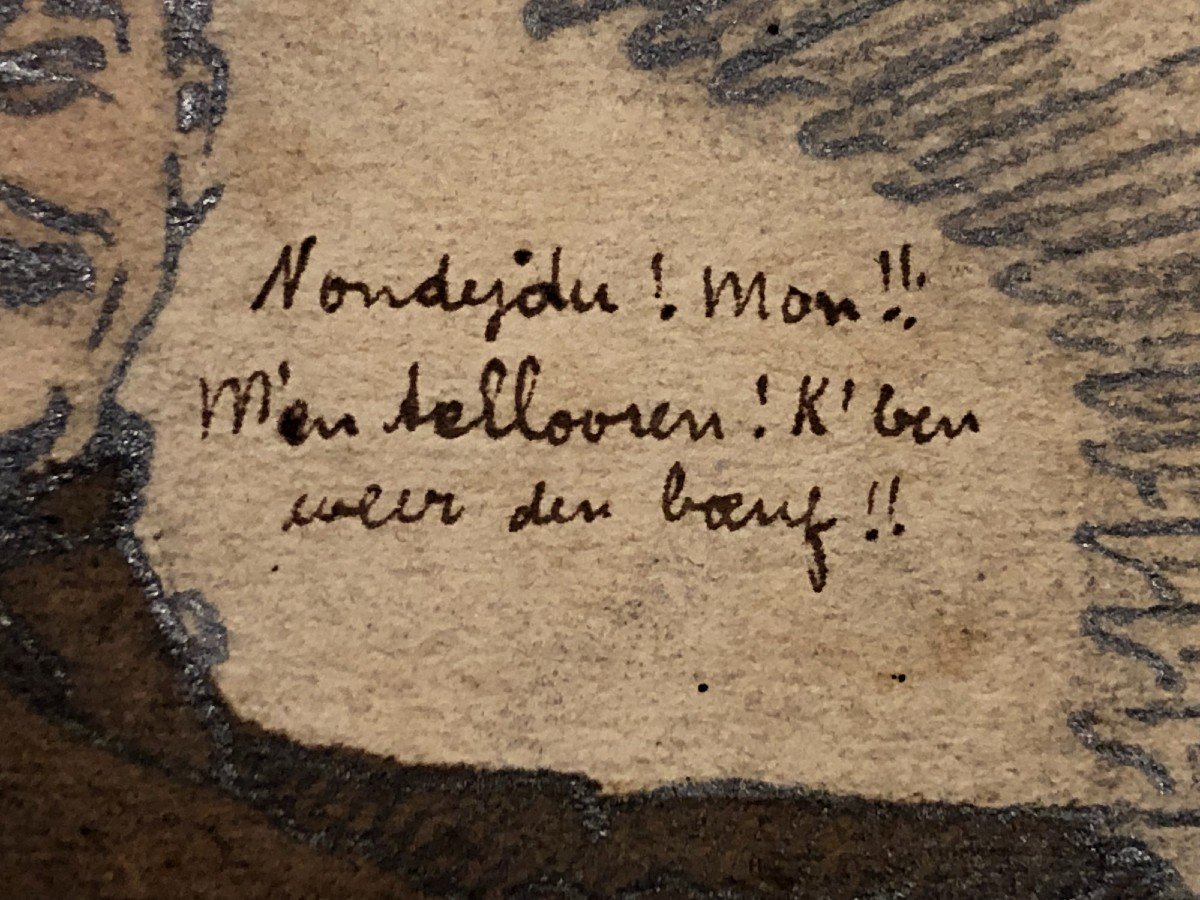 Nondejdu ! Mon !!!
M'en tellooren ! K' ben
weer den bœuf !!